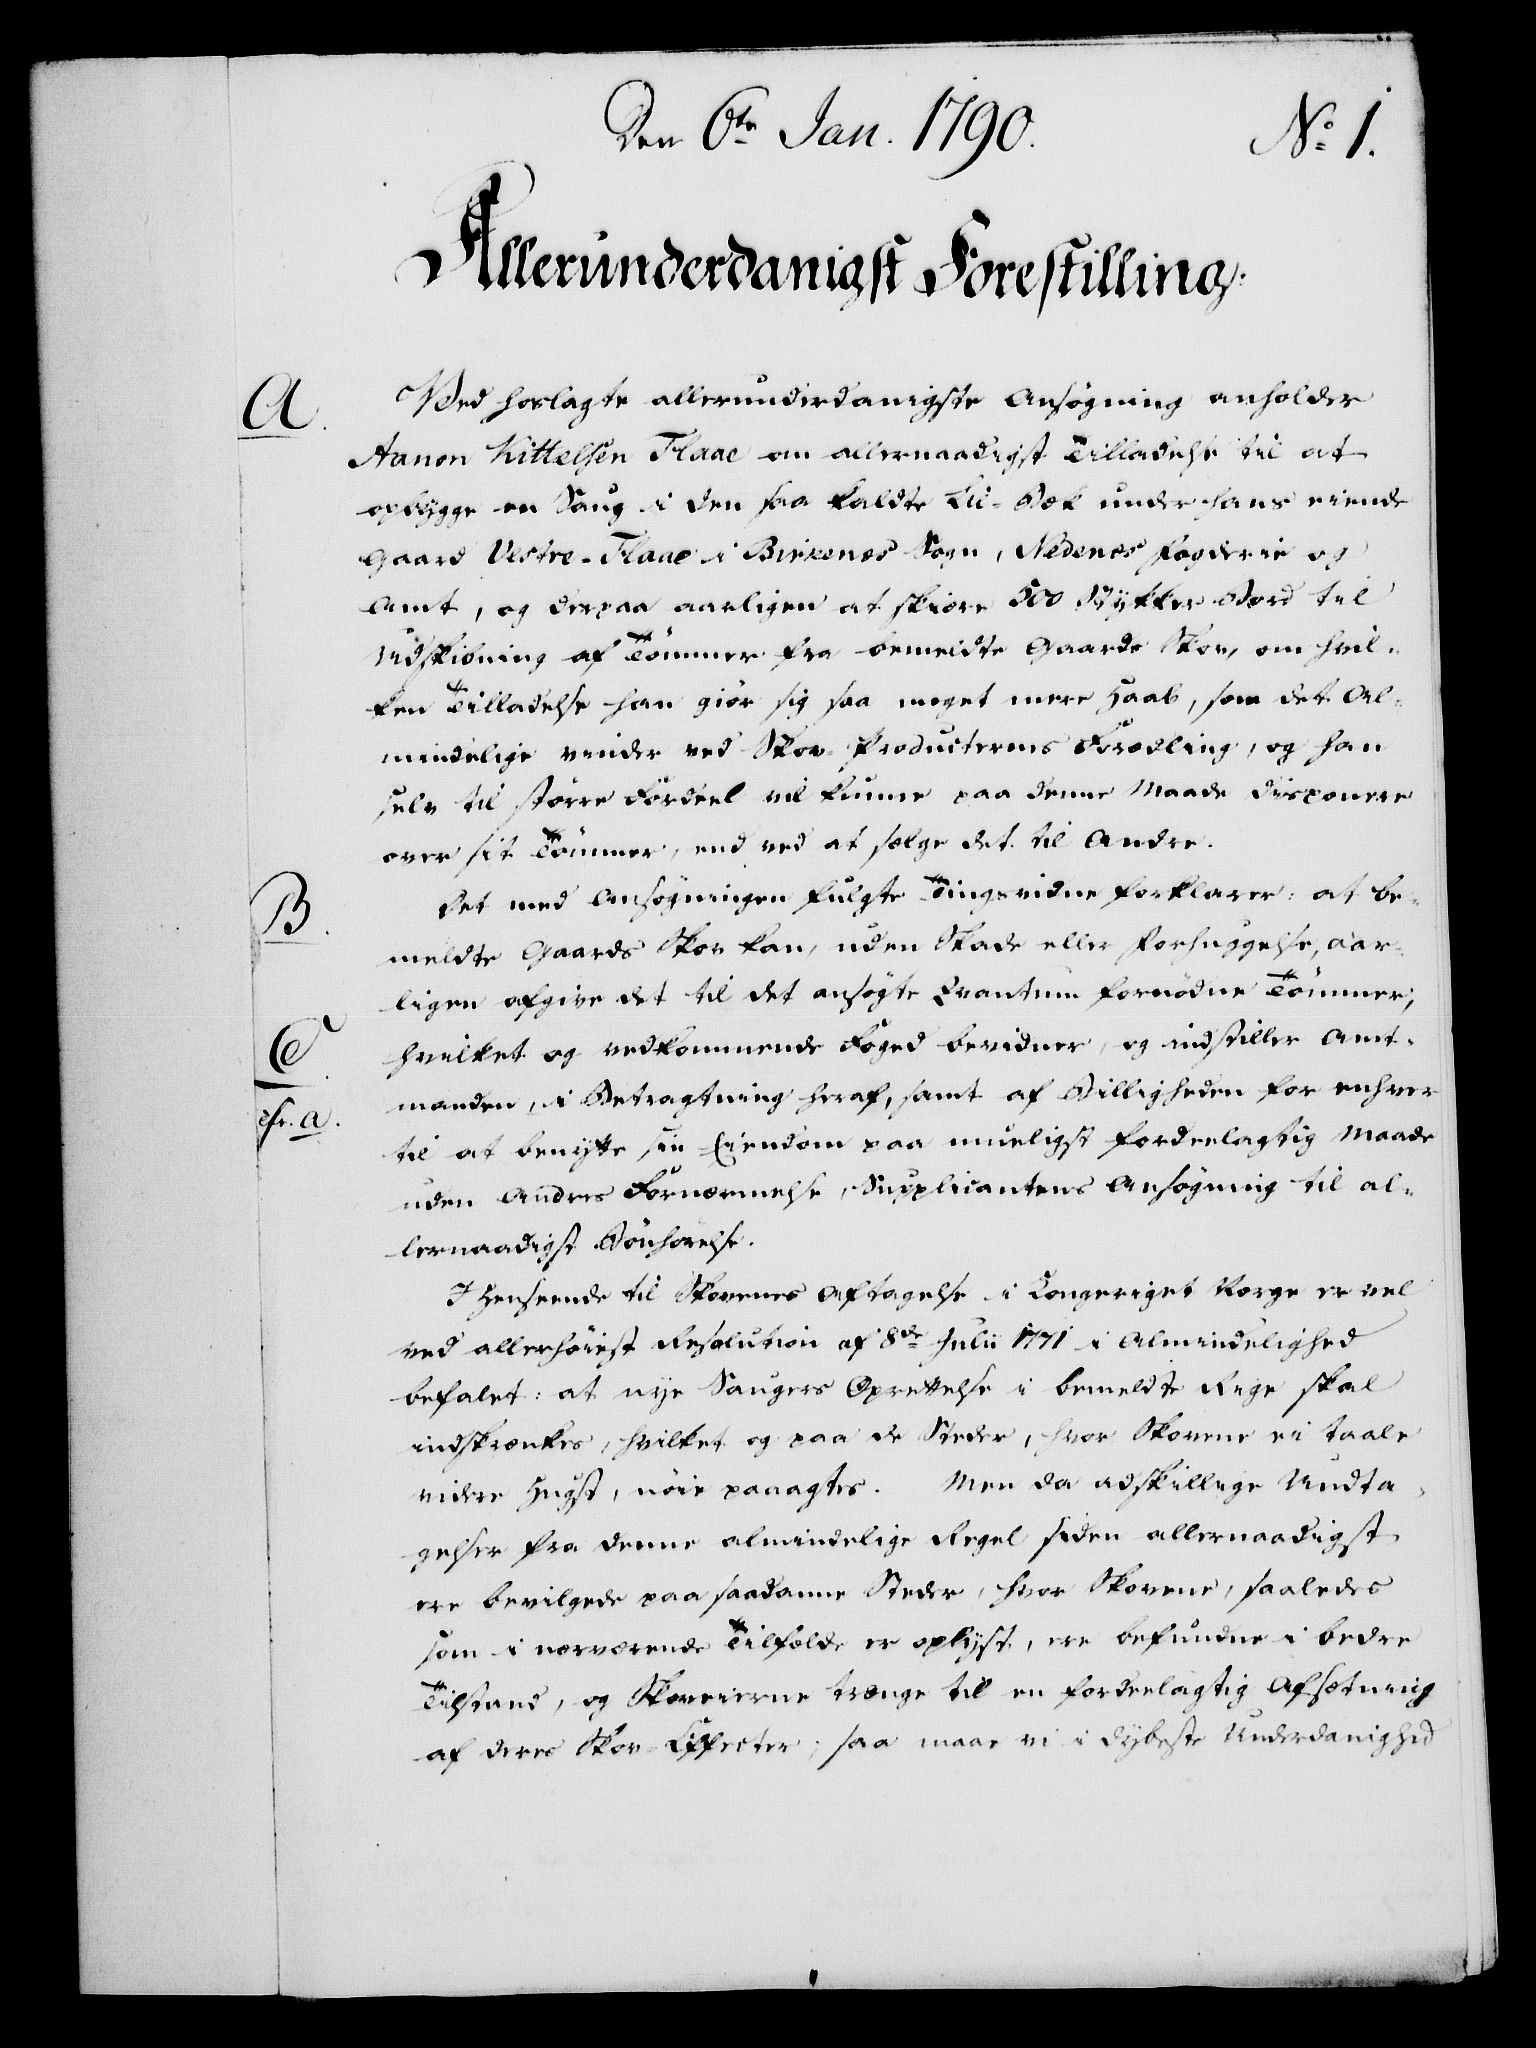 Den 6te Jan. 1790.
No 1.
Allerunderdanigst Forestilling.
A.
Ved hoslagte allerunderdanigste Ansøgning anholder
Aanon Kittelsen Flaae om allernaadigst Tilladelse til at
opbygge en Saug i den saa kaldte Lii-Bek under hans eiende
Gaard Vestre-Flaae i Birkenes Sogn, Nedenes Fogderie og
Amt, og derpaa aarligen at skiøre 500 Stykker Bord til
Udskibning af Tømmer fra bemeldte Gaards Skov, om hvil-
ken Tilladelse han giør sig saa meget mere Haab, som det Al-
mindelige vinder ved Skov-Producternes Forædling, og han
selv til større Fordeel vil kunne paa denne Maade disponere
over sit Tømmer, end ved at sælge det til Andre.
B.
Det med Ansøgningen fulgte Tingsvidne forklarer: at be-
meldte Gaards Skov kan, uden Skade eller Forhuggelse, aar-
ligen afgive det til det ansøgte Qvantum fornødne Tømmer,
C.
hvilket og vedkommende Foged bevidner, og indstiller Amt-
manden, i Betragtning heraf, samt af Billigheden for enhver
cfr. a.
til at benytte sin Eiendom paa mueligst fordeelagtig Maade
uden Andres Fornærmelse, Supplicantens Ansøgning til al-
lernaadigst Bønhørelse.
I Henseende til Skovenes Aftagelse i Kongeriget Norge er vel
ved allerhøiest Resolution af 8de Julii 1771 i Almindelighed
befalet: at nye Saugers Oprettelse i bemeldte Rige skal
indskrænkes, hvilket og paa de Steder, hvor Skovene ei taale
videre Hugst, nøie paaagtes. Men da adskillige Undta-
gelser fra denne almindelige Regel siden allernaadigst
ere bevilgede paa saadanne Steder, hvor Skovene, saaledes
som i nærværende Tilfælde er oplyst, ere befundne i bedre
Tilstand, og Skoveierne trænge til en fordeelagtig Afsætning
af deres Skov-Effecter; saa maae vi i dybeste Underdanighed